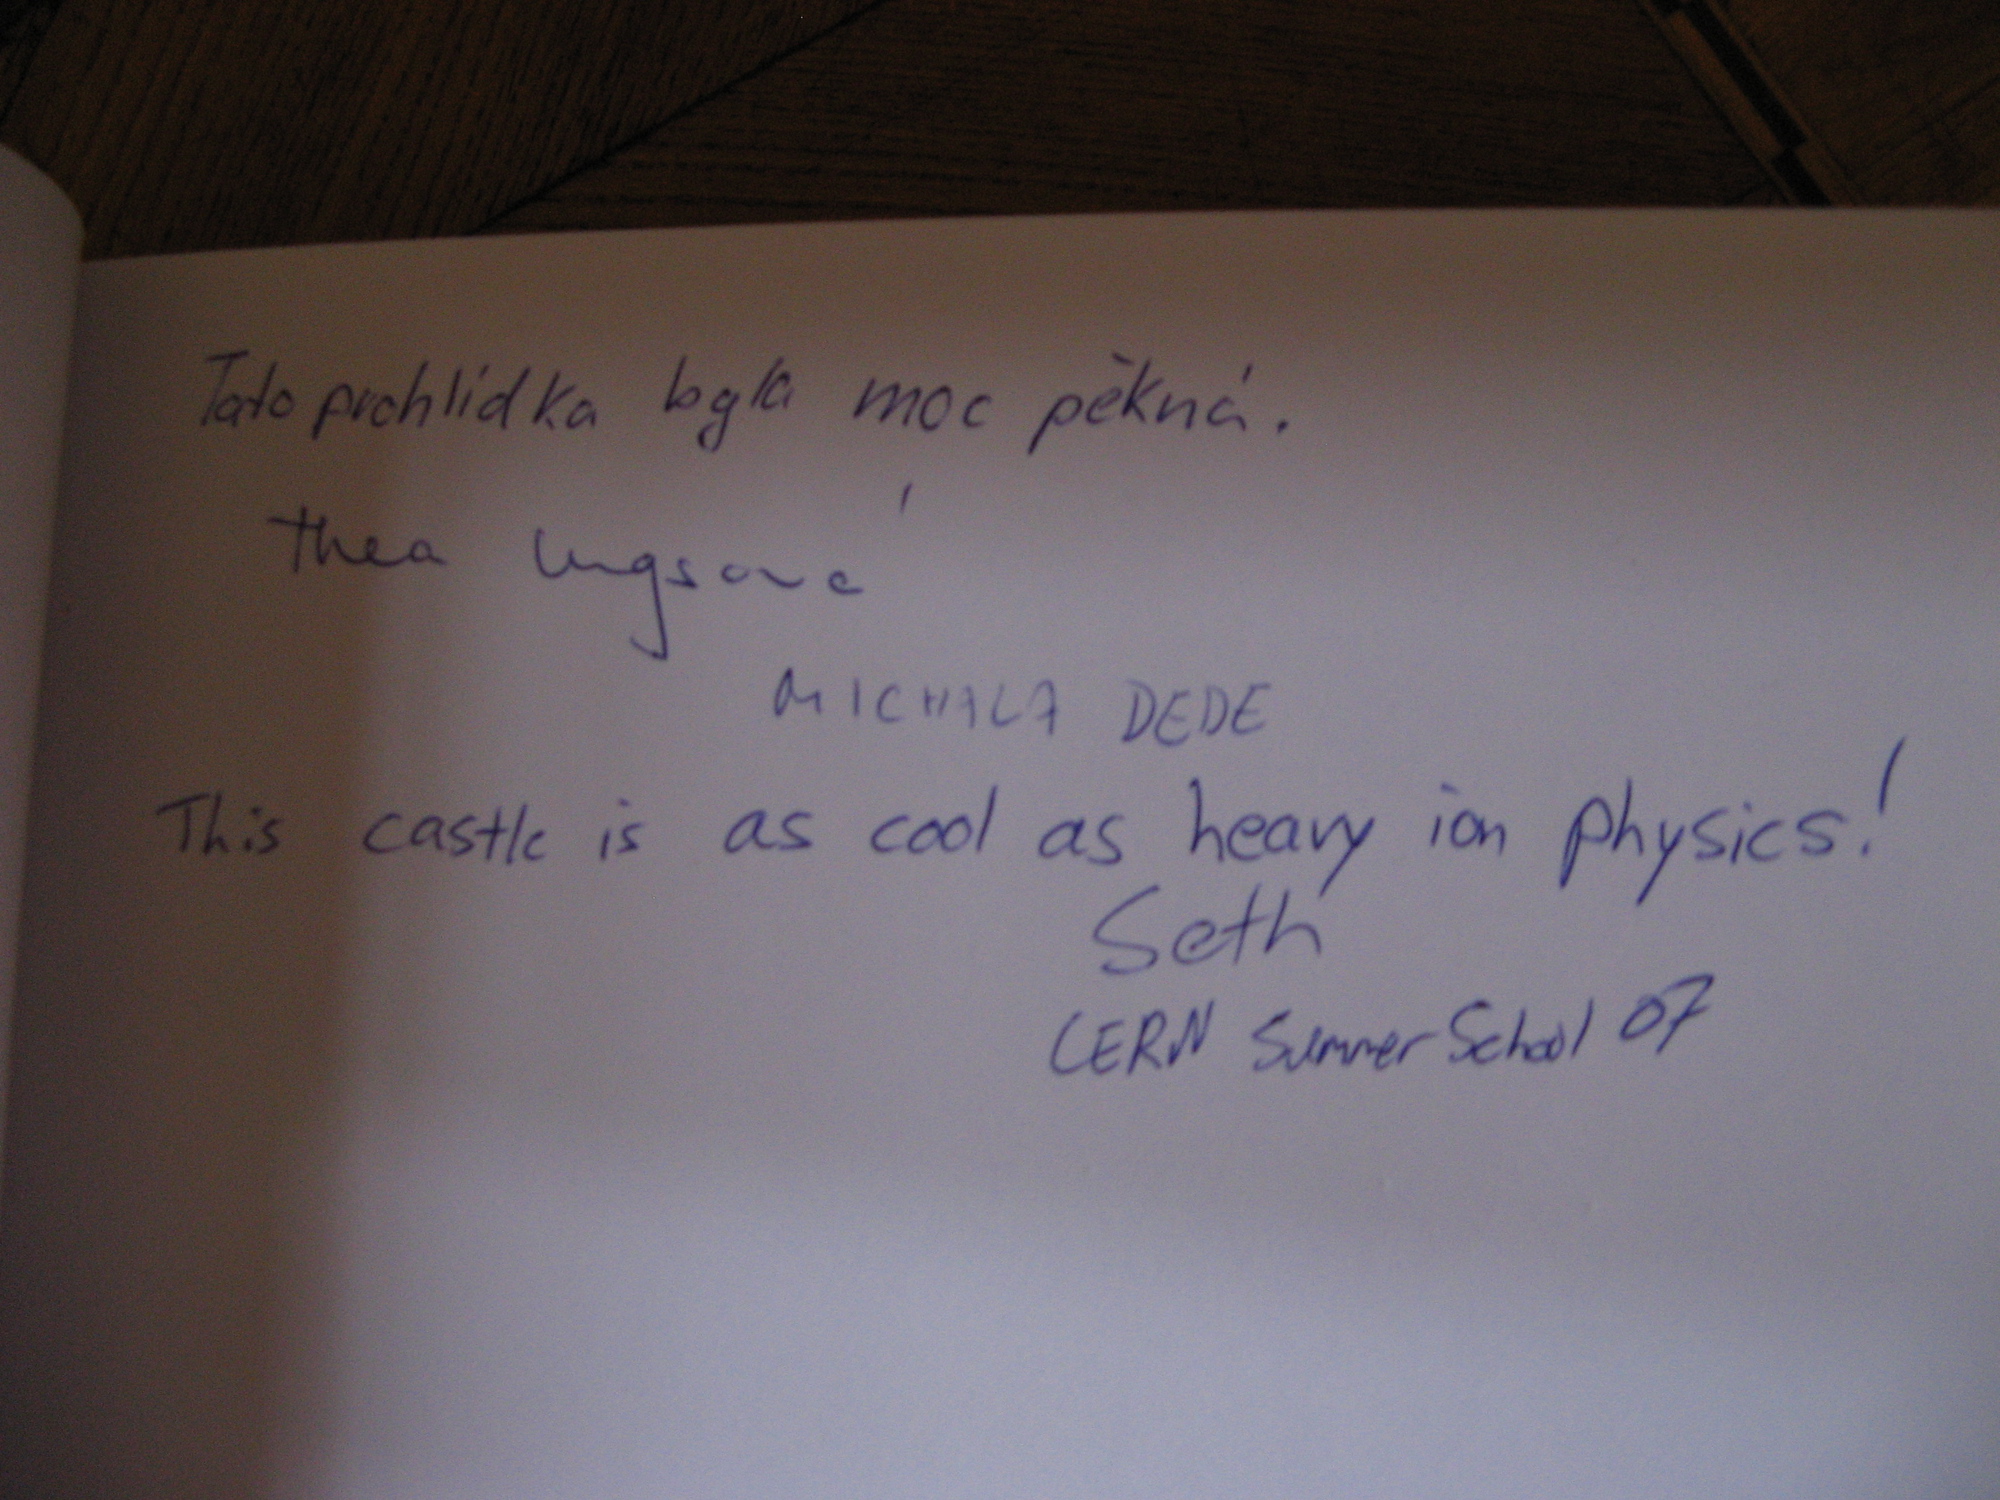 Tato prohlídka byla moc pěkná.
Thea
MICHALA DEDE
This castle is as cool as heavy ion physics!
Seth
CERN Summer School 07